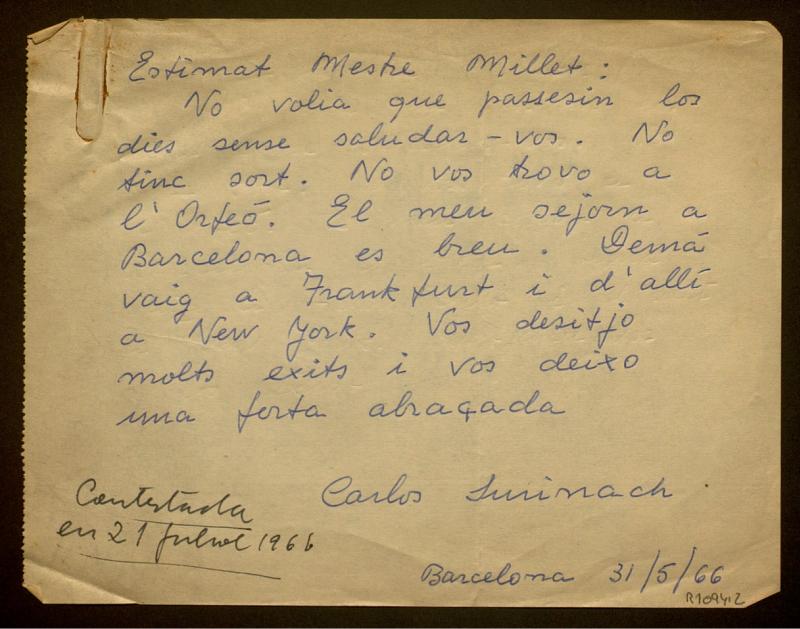 Estimat Mestre Millet:
No volia que passesin los
dies sense saludar-vos. No
tinc sort. No vos trovo a
l'Orfeó. El meu sejorn a
Barcelona es breu. Demá
vaig a Frankfurt i d'allí
a New York. Vos desitjo
molts exits i vos deixo
una forta abraçada
Carlos Surinach.
Contestada
en 21 Juliol 1966
Barcelona 31/5/66
R10942